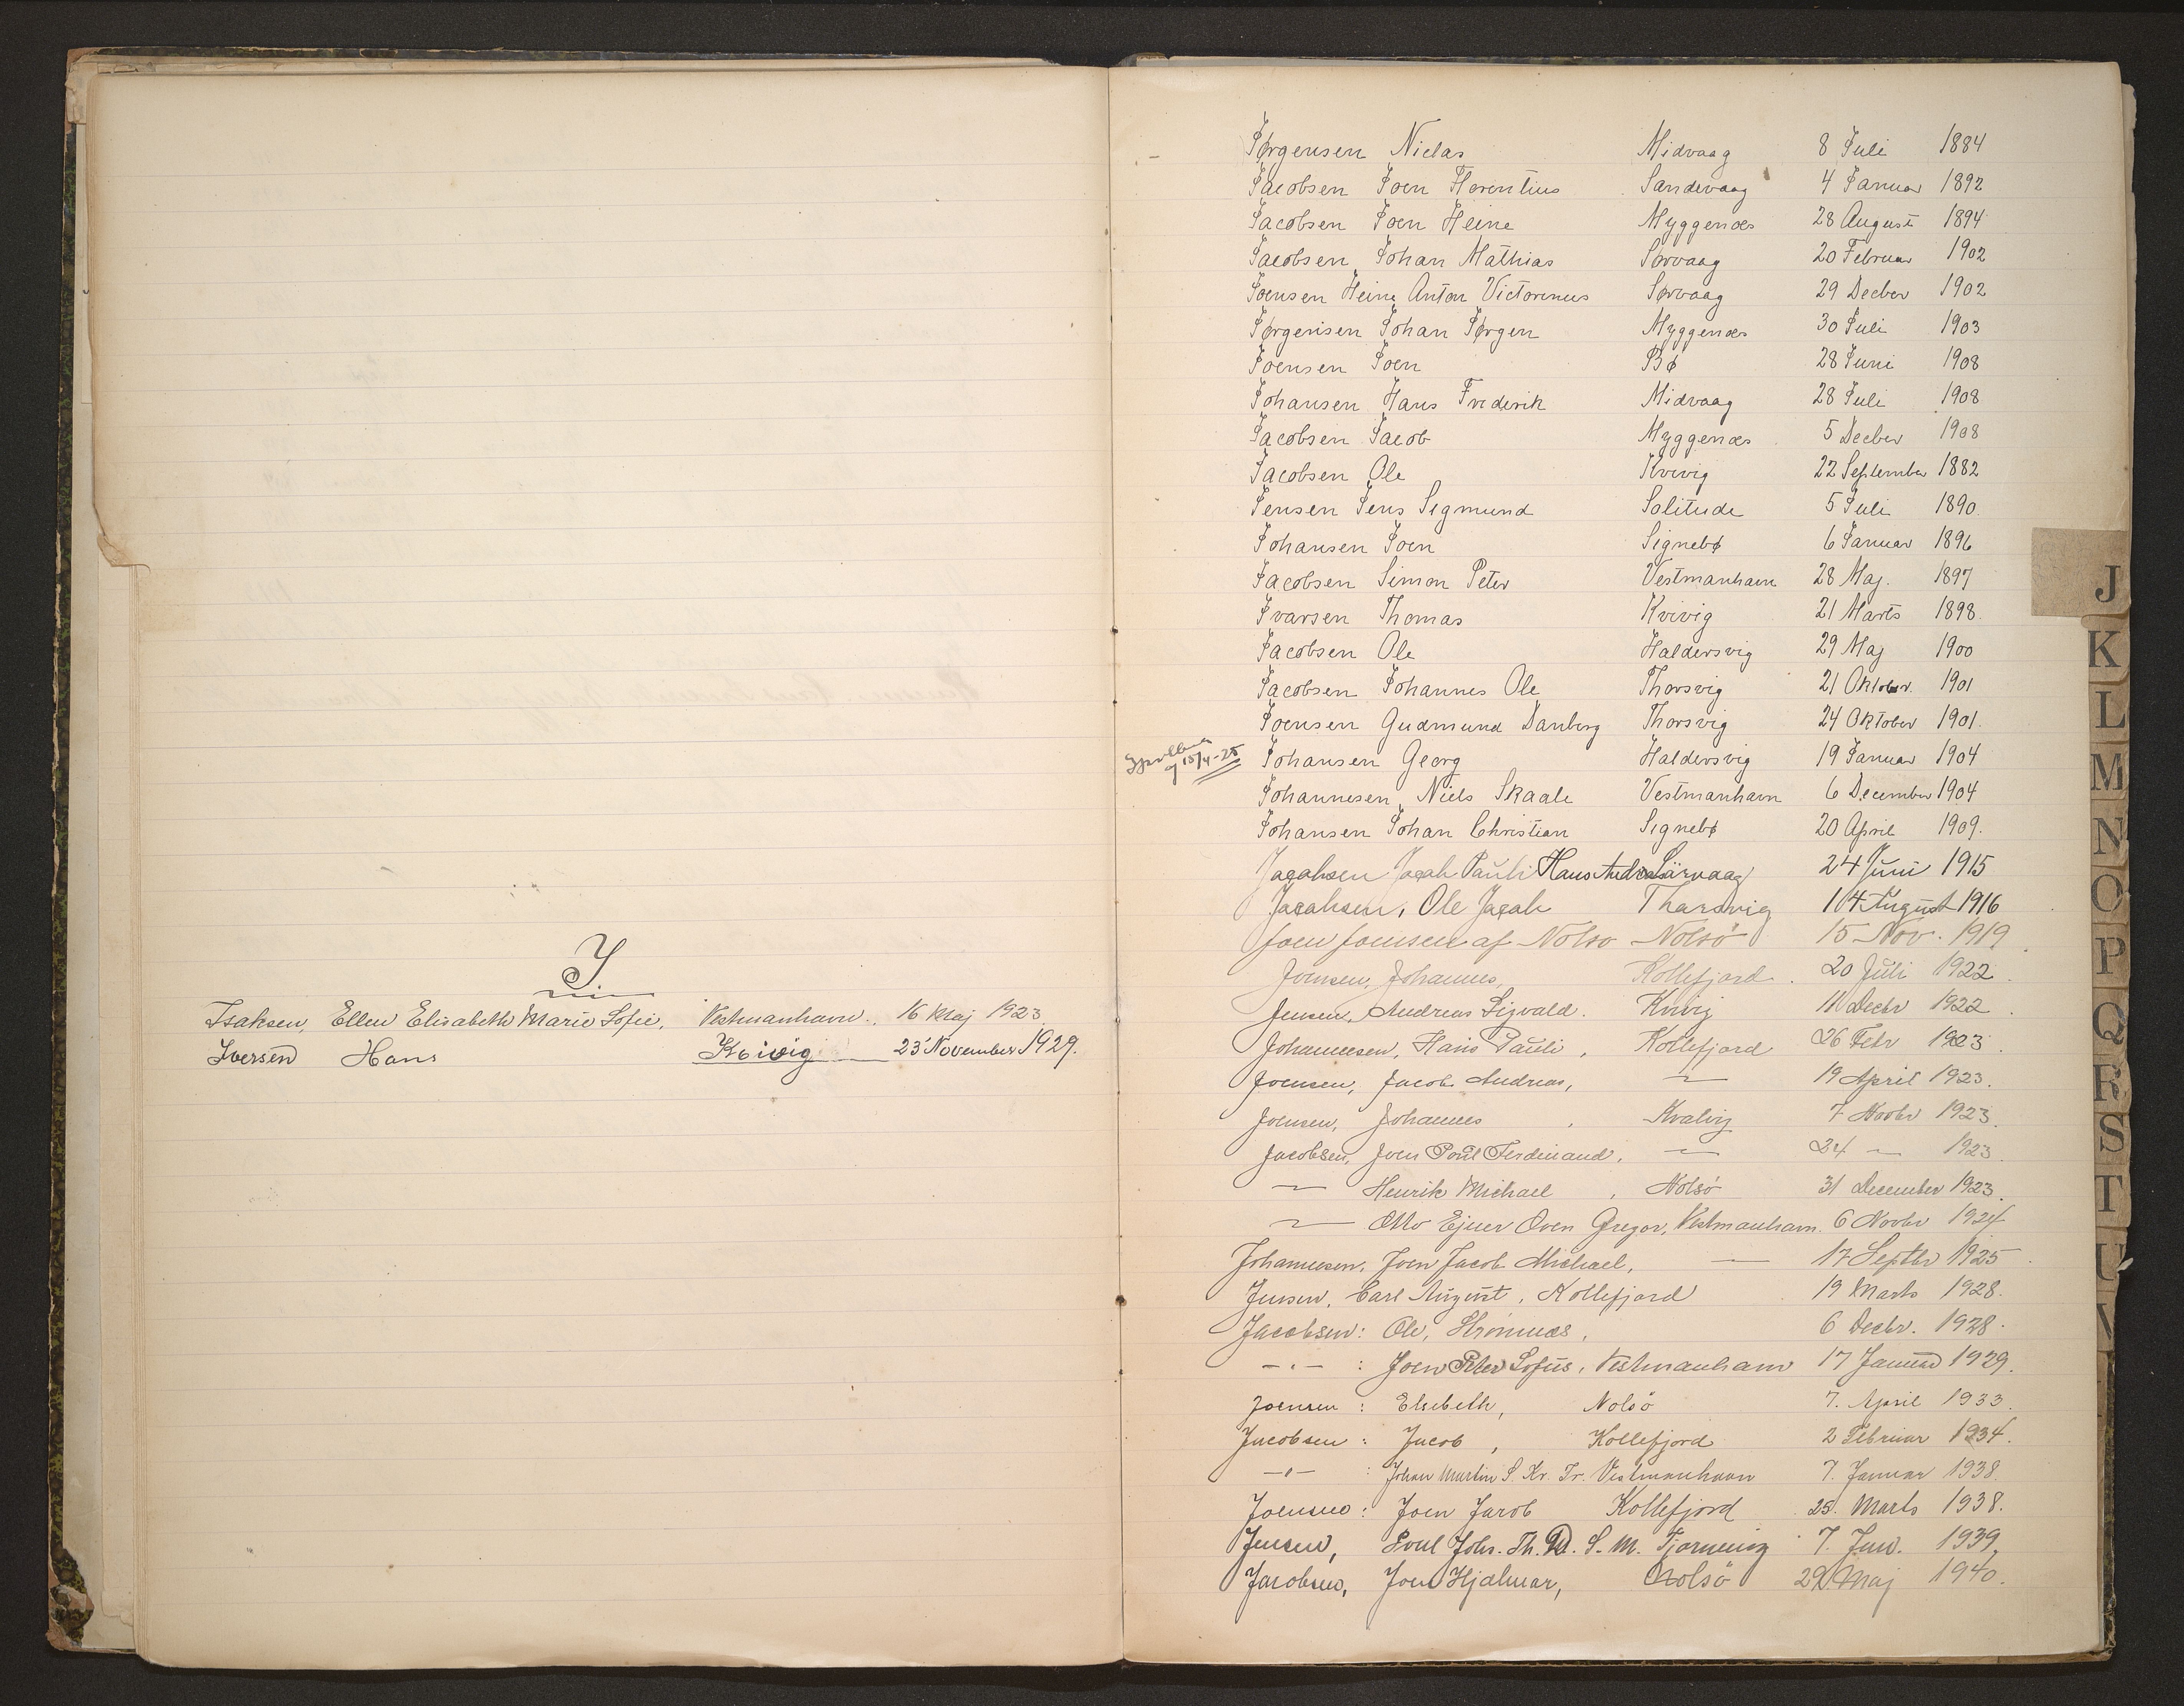 I.
Isaksen, Ellen Elisabeth Marie Sofie, Vestmanhavn., 16 Maj 1923
Iversen Hans Kvivig 23' November 1929.
Jørgensen Niclas Midvaag 8 Juli 1884
Jacobsen Joen Florentius Sandevaag 4 Januar 1892
Jacobsen Joen Heine Myggenæs 28 August 1894
Jacobsen Johan Mathias Sørvaag 20 Februar 1902
Joensen Heine Anton Victorinus Sørvaag 29 Decber 1902
Jørgensen Johan Jørgen Myggenæs 30 Juli 1903
Joensen Joen Bø 28 Juni 1908
Johansen Hans Frederik Midvaag 28 Juli 1908
Jacobsen Jacob Myggenæs 5 Decber 1908
Jacobsen Ole Kvivig 22 September 1882
Jensen Jens Sigmund Solitude 5 Juli 1890
Johansen Joen Signebø 6 Januar 1896
Jacobsen Simon Peter Vestmanhavn 28 Maj. 1897
Ivarsen Thomas Kvivig 21 Marts 1898.
Jacobsen Ole Haldersvig 29 Maj 1900
Jacobsen Johannes Ole Thorsvig 21 Oktober. 1901
Joensen Gudmund Danberg Thorsvig 24 Oktober 1901.
15/4-25 Johansen Georg Haldersvig 19 Januar 1904
Johannesen, Niels Skaale Vestmanhavn 6 December 1904
Johansen Johan Christian Signebø 20 April 1909.
Jacobsen Jacob Pauli Hans Andreas Sörvaag 24 Juni 1915
Jacobsen, Ole Jacob Thorsvig 14 August 1916
Joen Joensen af Nolsö Nolsö 15 Nov. 1919
Joensen, Johannes, Kollefjord. 20 Juli 1922
Jensen, Andreas Sigvald. Kvivig 11 Decbr 1922
Johannesen, Hans Pauli, Kollefjord 26 Febr 1923.
Joensen, Jacob Andreas, — 19 April 1923.
Joensen, Johannes, Kvalvig 7 Novbr 1923
Jacobsen, Joen Poul Ferdinand, — 24 — 1923
— Henrik Michael, Nolsö 31 December 1923.
— Otto Ejner Oven Gregor, Vestmanhavn. 6 Novbr 1924
Johannesen, Joen Jacob Michael, — 17 Septbr 1925
Jensen, Carl August, Kollefjord 19 Marts 1928.
Jacobsen: Ole, Strömnæs, 6 Decbr. 1928.
-"- : Joen Peter Sofus, Vestmanhavn 17 Januar 1929.
Joensen: Elsebeth, Nolsö 7. April 1933.
Jacobsen: Jacob, Kollefjord 2 Februar 1934.
-"- : Johan Martin S. Kr. Fr. Vestmanhavn 7. Januar 1938.
Joensen: Joen Jacob Kollefjord 25. Marts 1938.
Jensen, Poul Johs. Th. D. S. M. Tjørnuvig 7. Jun. 1939.
Jacobsen, Joen Hjalmar, Nolsö 29 Maj 1940.
J
K
L
M
N
O
P
Q
R
S
T
U
V